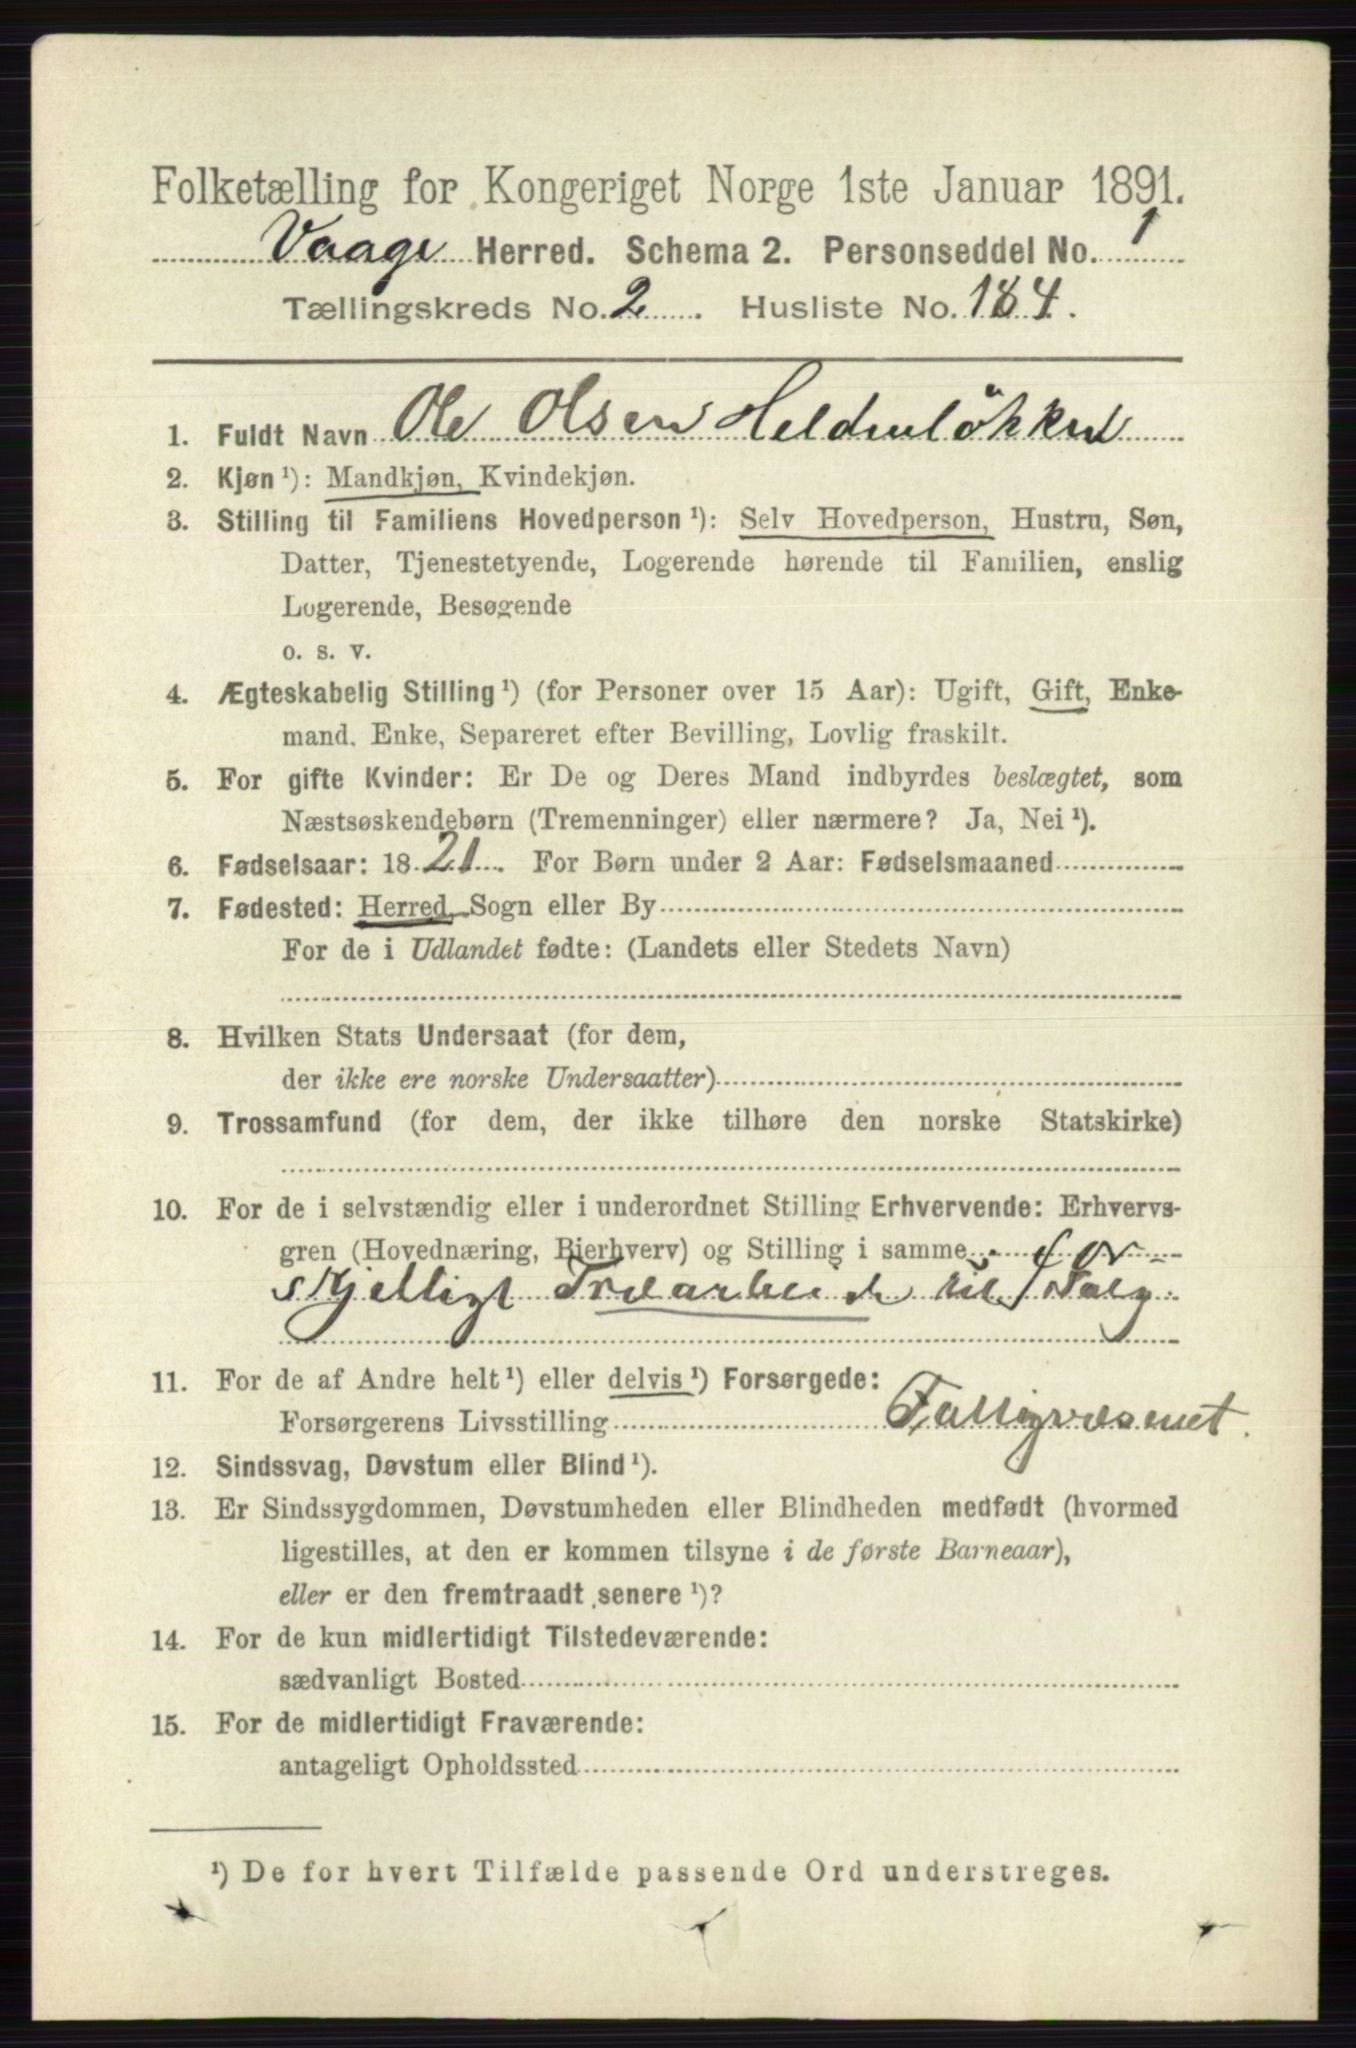 Folketælling for Kongeriget Norge 1ste Januar 1891.
Vaage Herred. Schema 2. Personseddel No. 1
Tællingskreds No. 2. Husliste No. 184.
1. Fuldt Navn Ole Olsen Heldenløkken
2. Kjøn ¹): Mandkjøn, Kvindekjøn.
3. Stilling til Familiens Hovedperson ¹): Selv Hovedperson, Hustru, Søn,
Datter, Tjenestetyende, Logerende hørende til Familien, enslig
Logerende, Besøgende
o. s. v.
4. Ægteskabelig Stilling ¹) (for Personer over 15 Aar): Ugift, Gift, Enke-
mand, Enke, Separeret efter Bevilling, Lovlig fraskilt.
5. For gifte Kvinder: Er De og Deres Mand indbyrdes beslægtet, som
Næstsøskendebørn (Tremenninger) eller nærmere? Ja, Nei ¹).
6. Fødselsaar: 1821. For Børn under 2 Aar: Fødselsmaaned
7. Fødested: Herred, Sogn eller By
For de i Udlandet fødte: (Landets eller Stedets Navn)
8. Hvilken Stats Undersaat (for dem,
der ikke ere norske Undersaatter)
9. Trossamfund (for dem, der ikke tilhøre den norske Statskirke)
10. For de i selvstændig eller i underordnet Stilling Erhvervende: Erhvervs-
gren (Hovednæring, Bierhverv) og Stilling i samme for-
skjelligt Trdarbeide til Salg.
11. For de af Andre helt ¹) eller delvis ¹) Forsørgede:
Forsørgerens Livsstilling Fattigvæsenet.
12. Sindssvag, Døvstum eller Blind ¹).
13. Er Sindssygdommen, Døvstumheden eller Blindheden medfødt (hvormed
ligestilles, at den er kommen tilsyne i de første Barneaar),
eller er den fremtraadt senere ¹)?
14. For de kun midlertidigt Tilstedeværende:
sædvanligt Bosted
15. For de midlertidigt Fraværende:
antageligt Opholdssted
¹) De for hvert Tilfælde passende Ord understreges.